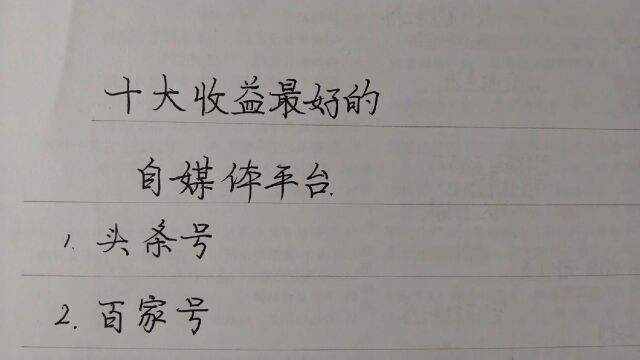 十大收益最好的
自媒体平台.
1. 头条号
2. 百家号